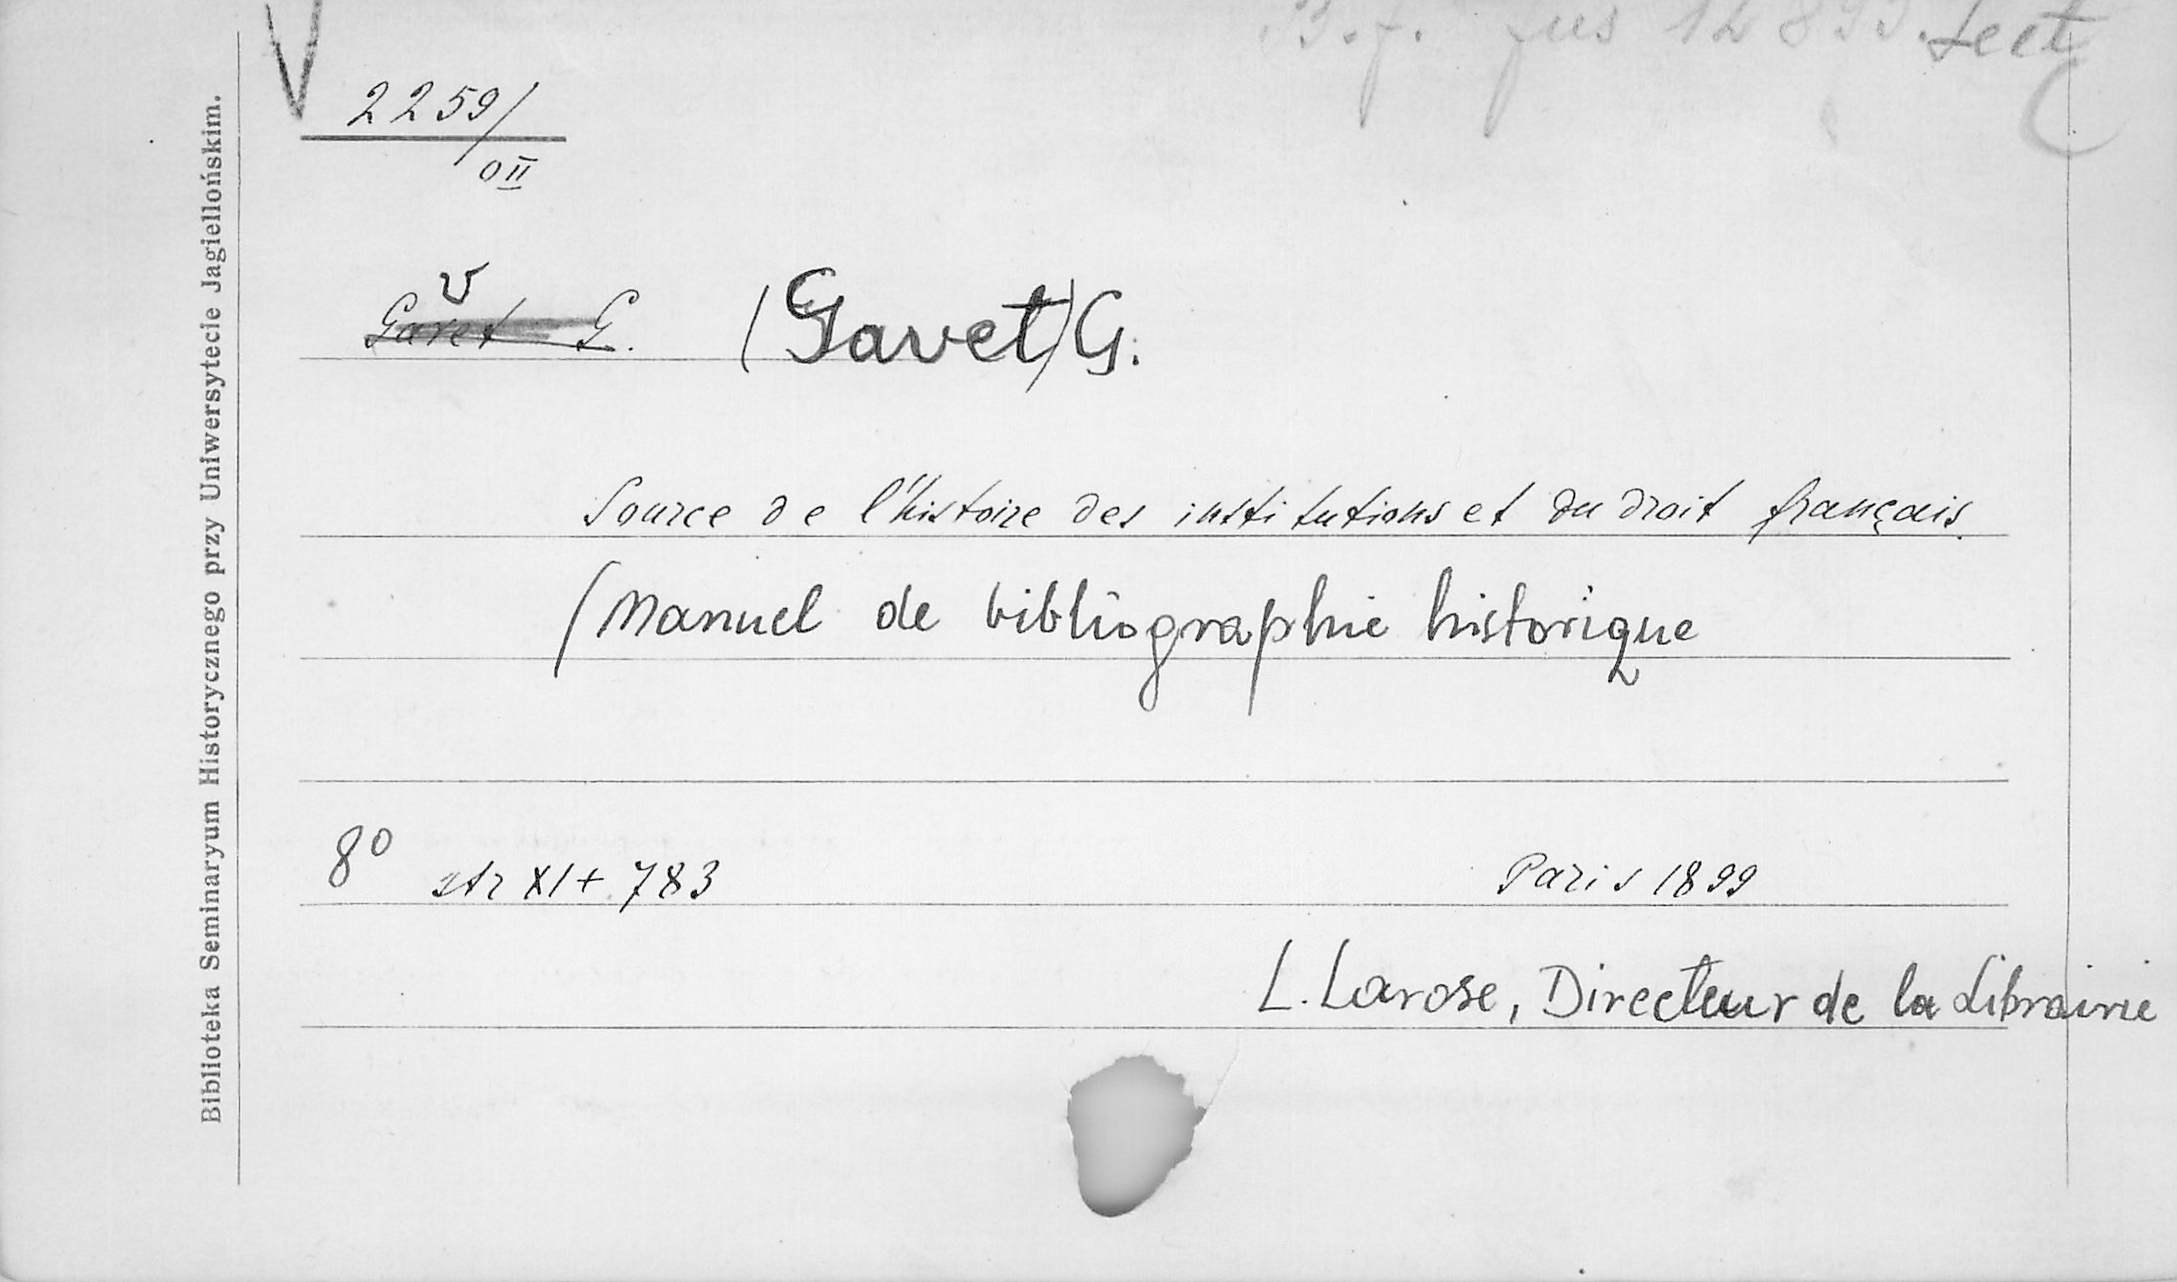 B.j. jus 12 893. Lect
2259/
0II
v
Garet G. (Gavet) G.
Source de l'histoire des institutions et du droit français.
(Manuel de bibliographie historique
8° str XI + 783 Paris 1899
L. Larose, Directeur de la Librairie
Biblioteka Seminaryum Historycznego przy Uniwersytecie Jagiellońskim.